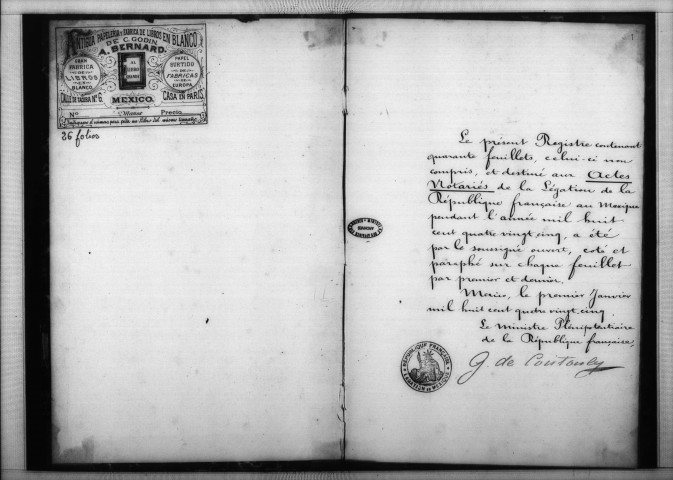 ANTIGUA PAPELERIA Y FABRICA DE LIBROS EN BLANCO
DE C. GODIN
A. BERNARD.
GRAN
FABRICA
DE
LIBROS
EN
BLANCO
AL
LIBRO
PAPEL
SURTIDO
DE
FABRICAS
DE
EUROPA
CALLE DE TACUBA Nº 6.
MEXICO.
CASA EN PARIS
Nº
Precio
26 folios
1
Le présent Registre contenant
quarante feuillets, celui-ci non
compris, et destiné aux Actes
Notariés de la Légation de la
République française au Mexique
pendant l'année mil huit
cent quatre vingt cinq, a été
par le soussigné ouvert, coté et
paraphé sur chaque feuillet
par premier et dernier.
Mexico, le premier Janvier
mil huit cent quatre vingt cinq
Le Ministre Plénipotentiaire
de la République française,
G. de Coutouly
REPUBLIQUE FRANÇAISE
LEGATION DE MEXICO